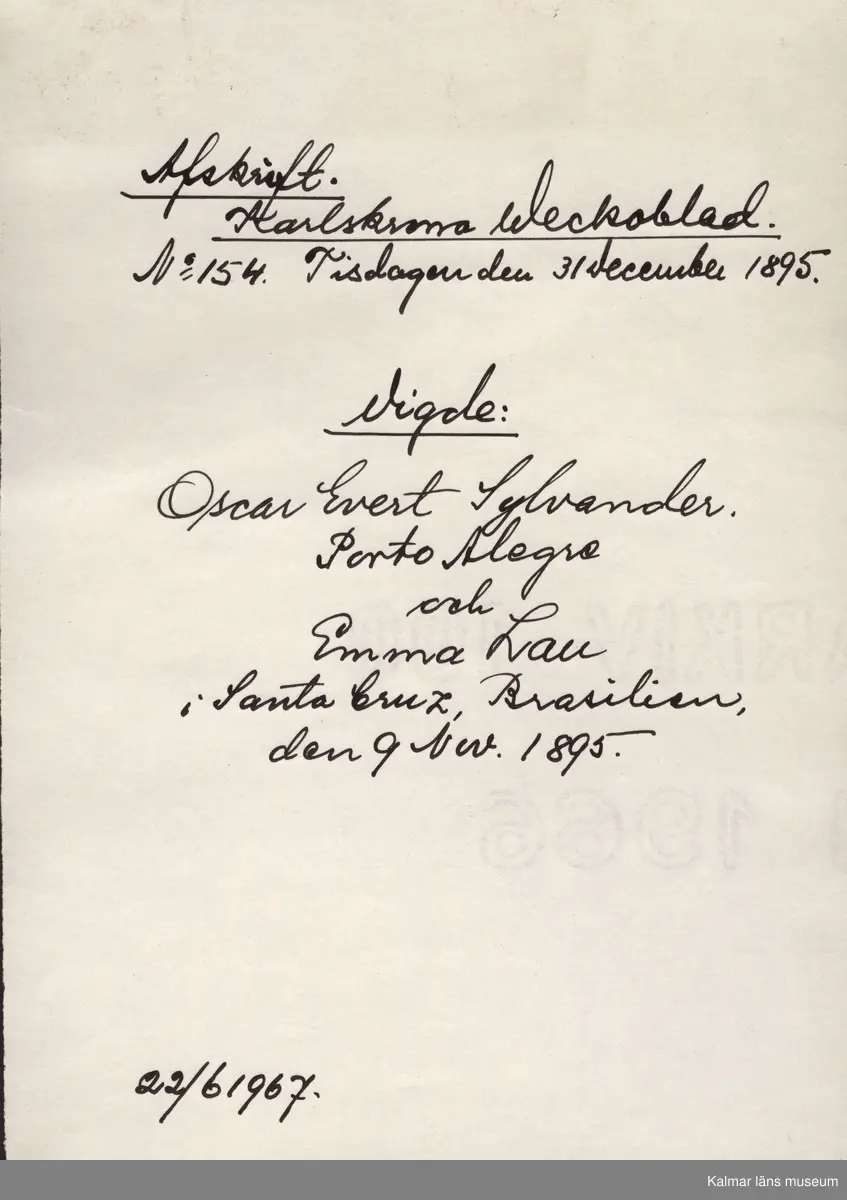 Afskrift.
Karlskrona Weckoblad.
No 154. Tisdagen den 31 December 1895.
Vigde:
Oscar Evert Sylvander.
Porto Alegre
och
Emma Lau
i Santa Cruz, Brasilien,
den 9 Nov. 1895.
1966
22/6 1967.
Kalmar läns museum